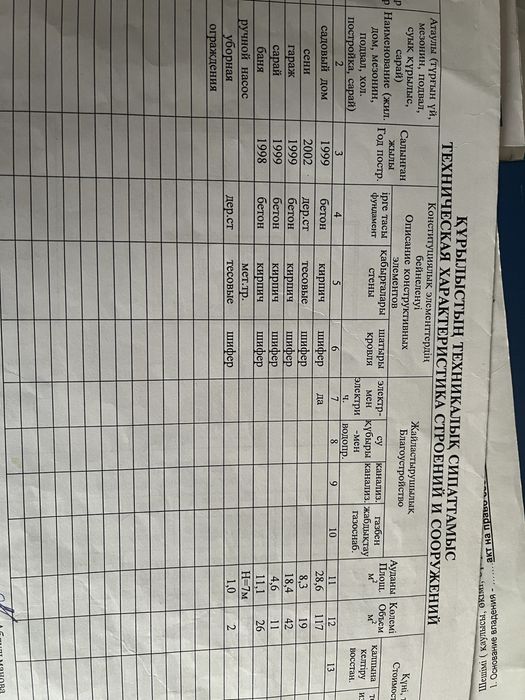 1. Основание владения -
акт на право
ҚҰРЫЛЫСТЫҢ ТЕХНИКАЛЫҚ СИПАТТАМЫС
ТЕХНИЧЕСКАЯ ХАРАКТЕРИСТИКА СТРОЕНИЙ И СООРУЖЕНИЙ
Атаулы (тұрғын үй, мезонин, подвал, суық құрылыс, сарай)
Наименование (жил. дом, мезонин, подвал, хол. постройка, сарай)
Салынған жылы
Год постр.
Конституциялық элементтердің бейнеленуі
Описание конструктивных элементов
ірге тасы фундамент
қабырғалары стены
шатыры кровля
Жайластырушылық
Благоустройство
электр-мен электрич.
су құбыры-мен водопр.
канализ. канализ.
газбен жабдықтау газоснаб.
Ауданы Площ. м²
Көлемі Объем м²
Күні,
Стоимость
қалпына келтіру восстан.
2 3 4 5 6 7 8 9 10 11 12 13
садовый дом 1999 бетон кирпич шифер да 28,6 117
сени 2002 дер.ст тесовые шифер 8,3 19
гараж 1999 бетон кирпич шифер 18,4 42
сарай 1999 бетон кирпич шифер 4,6 11
баня 1998 бетон кирпич шифер 11,1 26
ручной насос мет.тр. Н=7м
уборная дер.ст тесовые шифер 1,0 2
ограждения